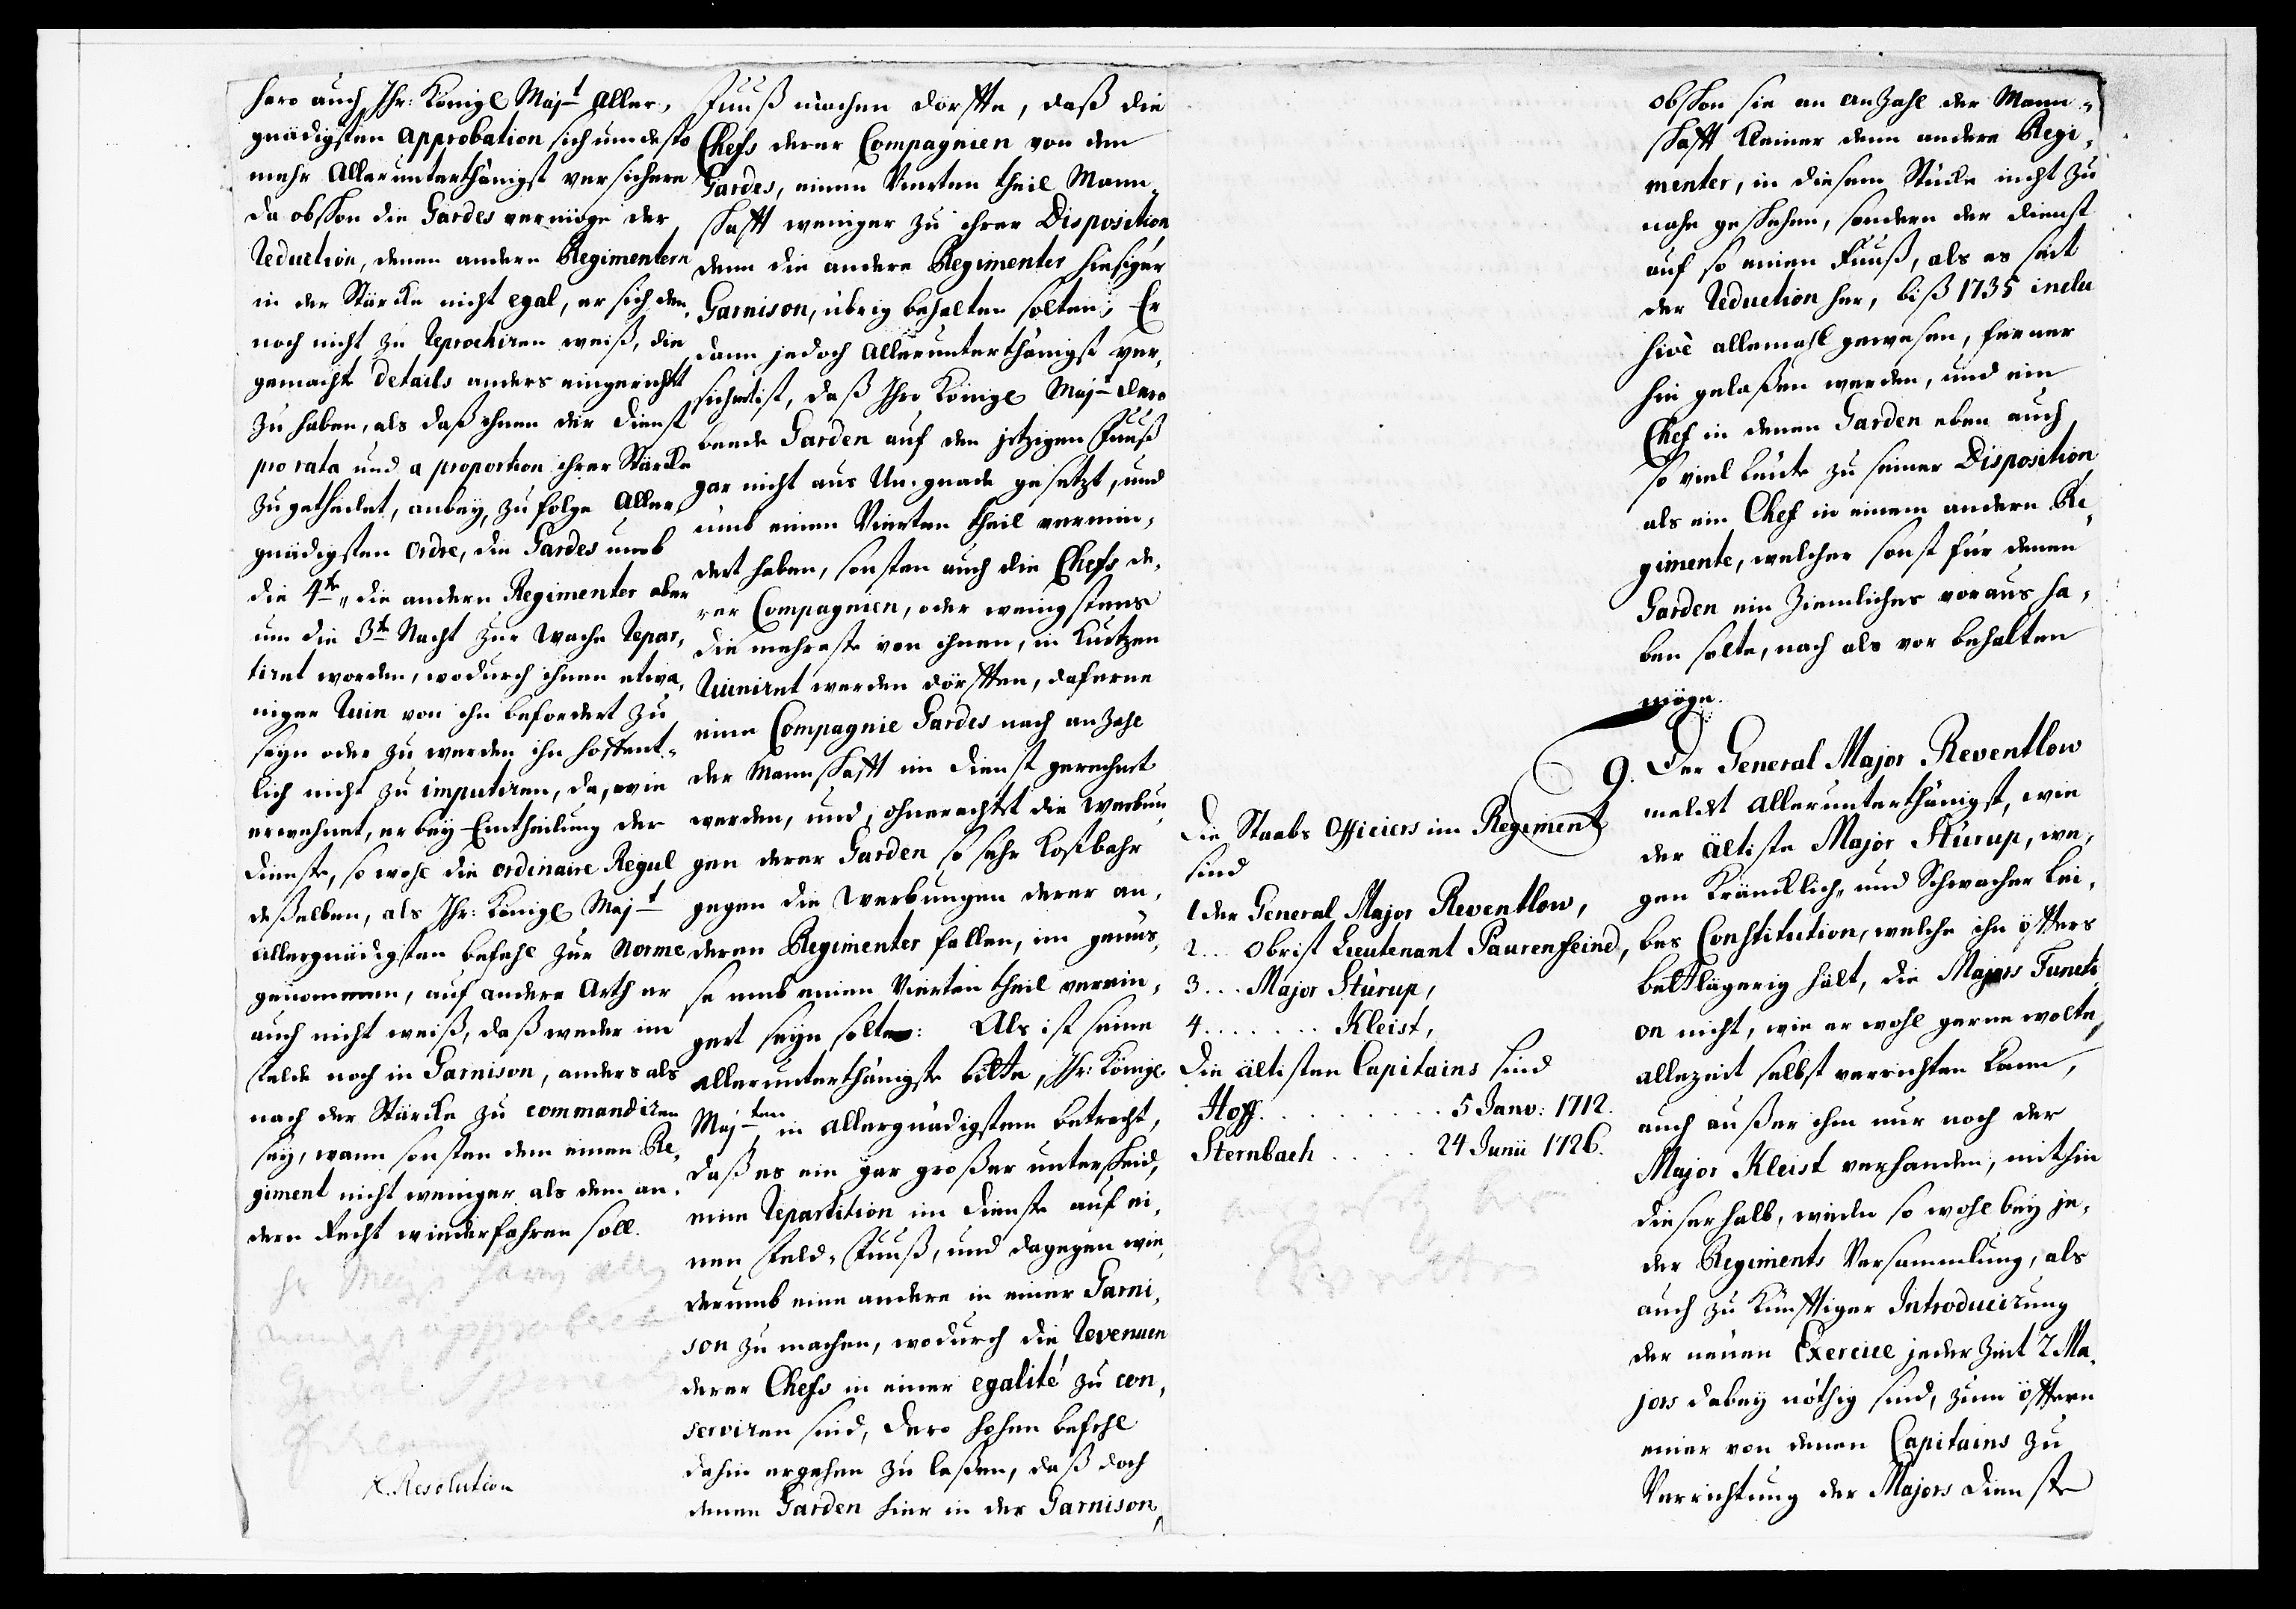 hero auch Ihr: Königl Majt Aller,
gnädigsten approbation sich umdesto
mehr Allerunterthänigst versichere
da obschon die Gardes vermöge der
Reduction, denen andern Regimentern
in der Stärcke nicht egal, er sich den,
noch nicht zu reprochiren weiß, die
gemachte details anders eingerichtet
zu haben, als daß ihnen der Dienst
pro rata und a proportion ihrer Stärcke
zugetheilet, anbey, zu folge Aller,
gnädigsten ordre, die Gardes umb
die 4te, die andern Regimenter aber
um die 3te Nacht zur Wache repar,
tiret worden, wodurch ihnen etwa,
niger Ruin von ihn befordert zu
seyn oder zu werden ihn hoffent,
lich nicht zu imputiren, da, wie
erwehnet, er bey Eintheilung der
Dienste, so wohl die ordinaire Regul
deßelben, als Ihr: Königl Majt
allergnädigsten befehl zur Norme
genommen, auf andere Arth er
auch nicht weiß, daß weder im
Felde noch in Garnison, anders als
nach der Stärcke zu commandiren
sey, wann sonsten dem einen Re,
giment nicht weniger als dem an,
dern Recht wiederfahren soll.
x. Resolution
Fuuß machen dörffte, daß die
Chefs derer Compagnien von den
Gardes, einen Vierten theil Mann,
schafft weniger zu ihrer Disposition
denn die andere Regimenter hiesiger
Garnison, übrig behalten solten; Er
dann jedoch Allerunterthänigst ver,
sichert ist, daß Ihro Königl Majt dero
beede Garden auf den jetzigen Fuuß
gar nicht aus Un-gnade gesetzt, und
umb einen Vierten theil vermin,
dert haben, sonsten auch die Chefs de,
rer Compagnien, oder wenigstens
die mehreste von ihnen, in Kurtzen
Ruiniret werden dörfften, daferne
eine Compagnie Gardes nach anzahl
der Mannschafft im Dienst gerechnet
werden, und, ohnerachtet die Werbun,
gen derer Garden so sehr kostbahr
gegen die Werbungen derer an,
deren Regimenter fallen, im genus,
se umb einen Vierten theil verrin,
gert seyn solte: Als ist seine
allerunterthänigste bitte, Ihr: Königl
Majten in allergnädigstem betracht,
daß es ein gar großer unterscheid,
eine Repartition im Dienste auf ei,
nen Feld-Fuuß, und dagegen wie,
derumb eine andere in einer Garni,
son zu machen, wodurch die Revenuen
derer Chefs in einer egalité zu con,
serviren sind, Dero hohen befehl
dahin ergehen zu laßen, daß doch
denen Garden hier in der Garnison,
Die Staabs Officiers im Regiment
sind
1 der General Major Reventlow,
2 ... Obrist Lieutenant Paurenfeind,
3 ... Major Stürup,
4 ....... Kleist,
Die ältisten Capitains sind
Hoff .......... 5 Janv: 1712.
Sternbach ..... 24 Junii 1726.
obschon sie an anzahl der Mann,
schafft kleiner denn andere Regi,
menter, in diesem Stücke nicht zu
nahe geschehen, sondern der Dienst
auf so einen Fuuß, als es seit
der Reduction her, biß 1735 inclu
sivè allemahl gewesen, ferner
hin gelaßen werden, und ein
Chef in denen Garden eben auch
so viel Leute zu seiner Disposition
als ein Chef in einem andern Re,
gimente, welcher sonst für denen
Garden ein Ziemliches voraus ha,
ben solte, nach als vor behalten
möge.
9. Der General Major Reventlow
meldet Allerunterthänigst, wie
der ältiste Major Stürup, we,
gen Kräncklich, und Schwacher Lei,
bes Constitution, welche ihn öffters
bettlägerig hält, die Majors Functi
on nicht, wie er wohl gerne wolte,
allezeit selbst verrichten kann,
auch außer ihm nur noch der
Major Kleist verhanden, mithin
dieserhalb, wieder so wohl bey je,
der Regiments Versammlung, als
auch zu künfftiger Introducirung
der neuen Exercice jeder Zeit 2 Ma,
jors dabey nöthig sind, zum öfftern
einer von denen Capitains zu
Verrichtung der Majors Dienste